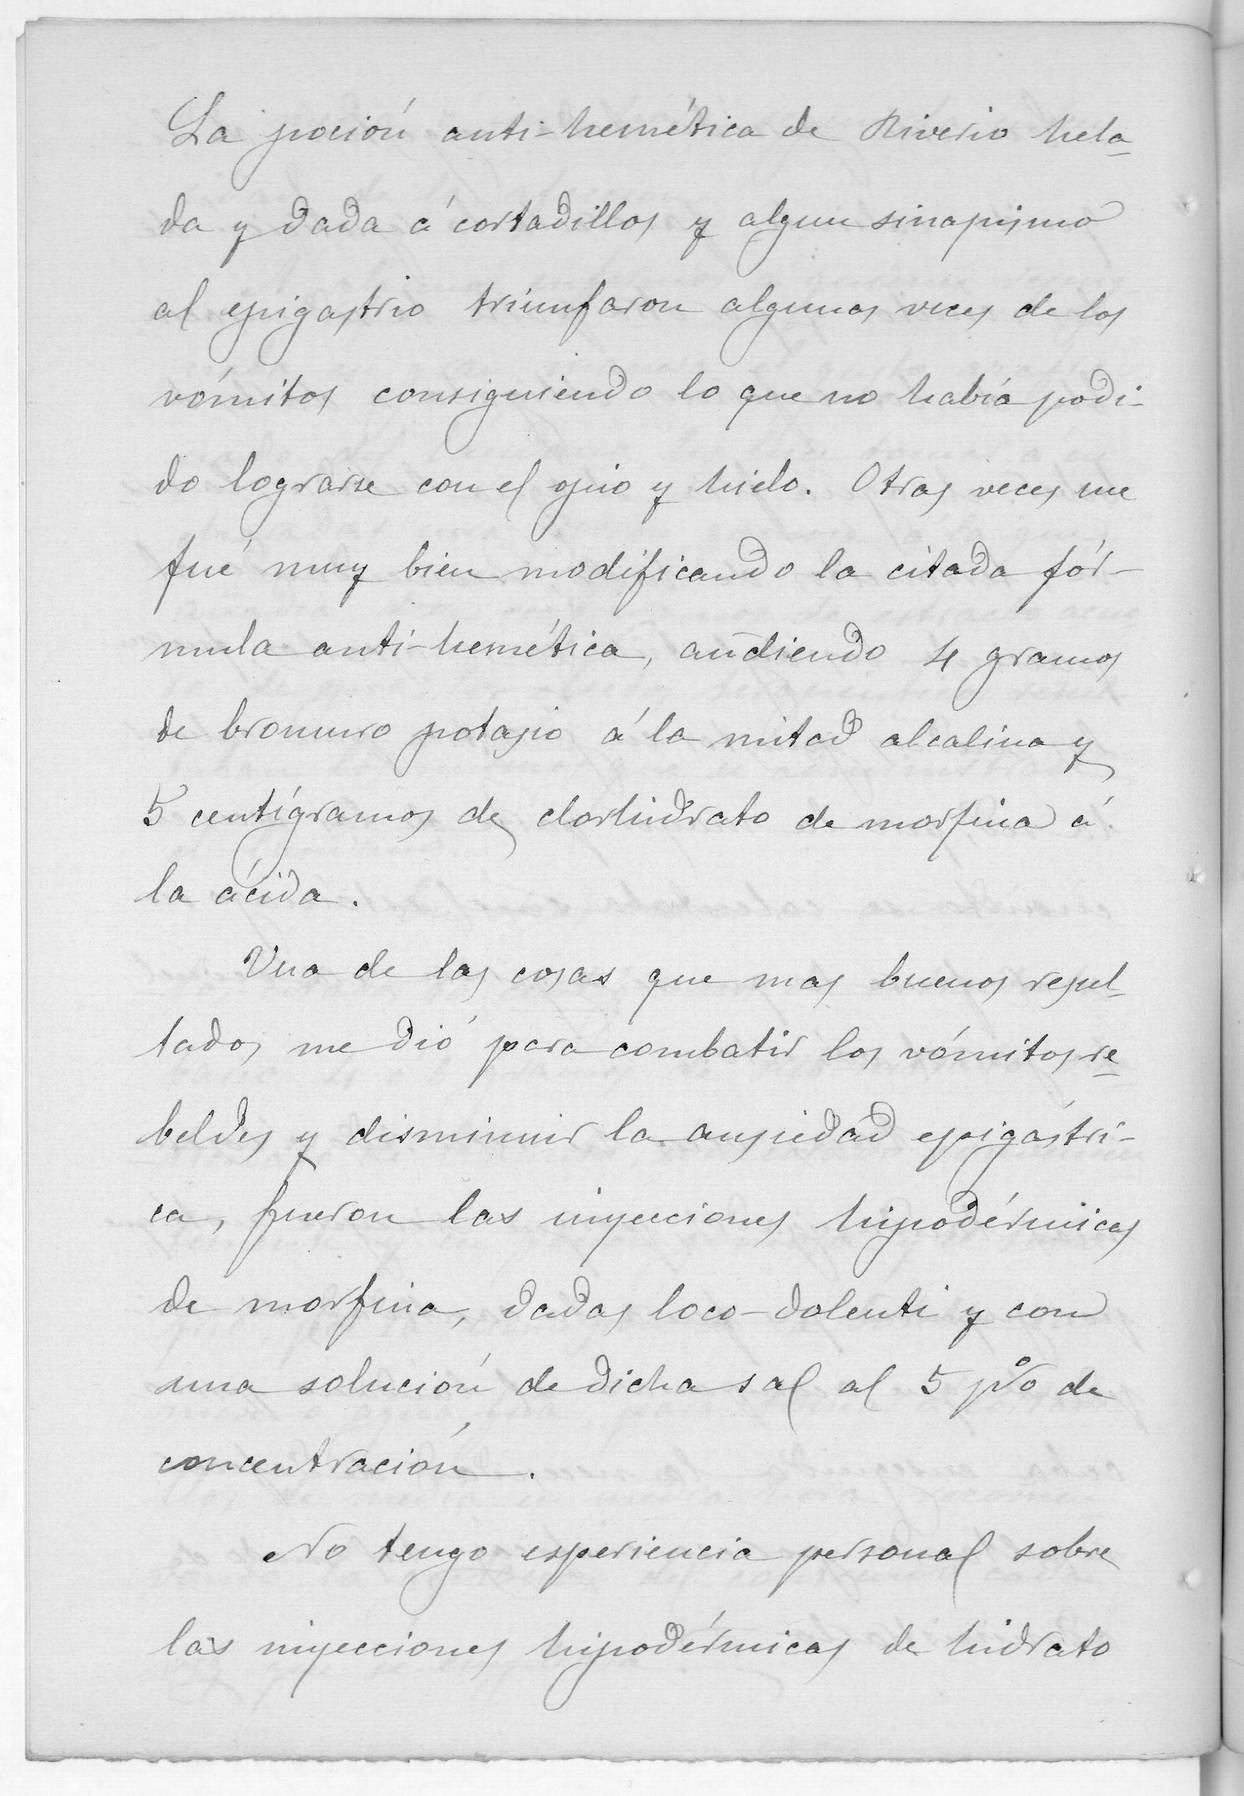 La poción anti-hemética de Riverio hela-
da y dada á cortadillos y algun sinapismo
al epigastrio triumfaron algunas veces de los
vómitos consiguiendo lo que no había podi-
do lograrse con el opio y hielo. Otras veces me
fué muy bien modificando la citada fór-
mula anti-hemética, añdiendo 4 gramos
de bromuro potasio á la mitad alcalina y
5 centígramos de clorhidrato de morfina á
la ácida.
Una de las cosas que mas buenos resul-
tados me dió para combatir los vómitos re-
beldes y disminuir la ansiedad epigástri-
ca, fueron las inyecciones hipodérmicas
de morfina, dadas loco-dolenti y con
una solución de dicha sal al 5 p% de
concentración.
No tengo esperiencia personal sobre
las inyecciones hipodérmicas de hidrato